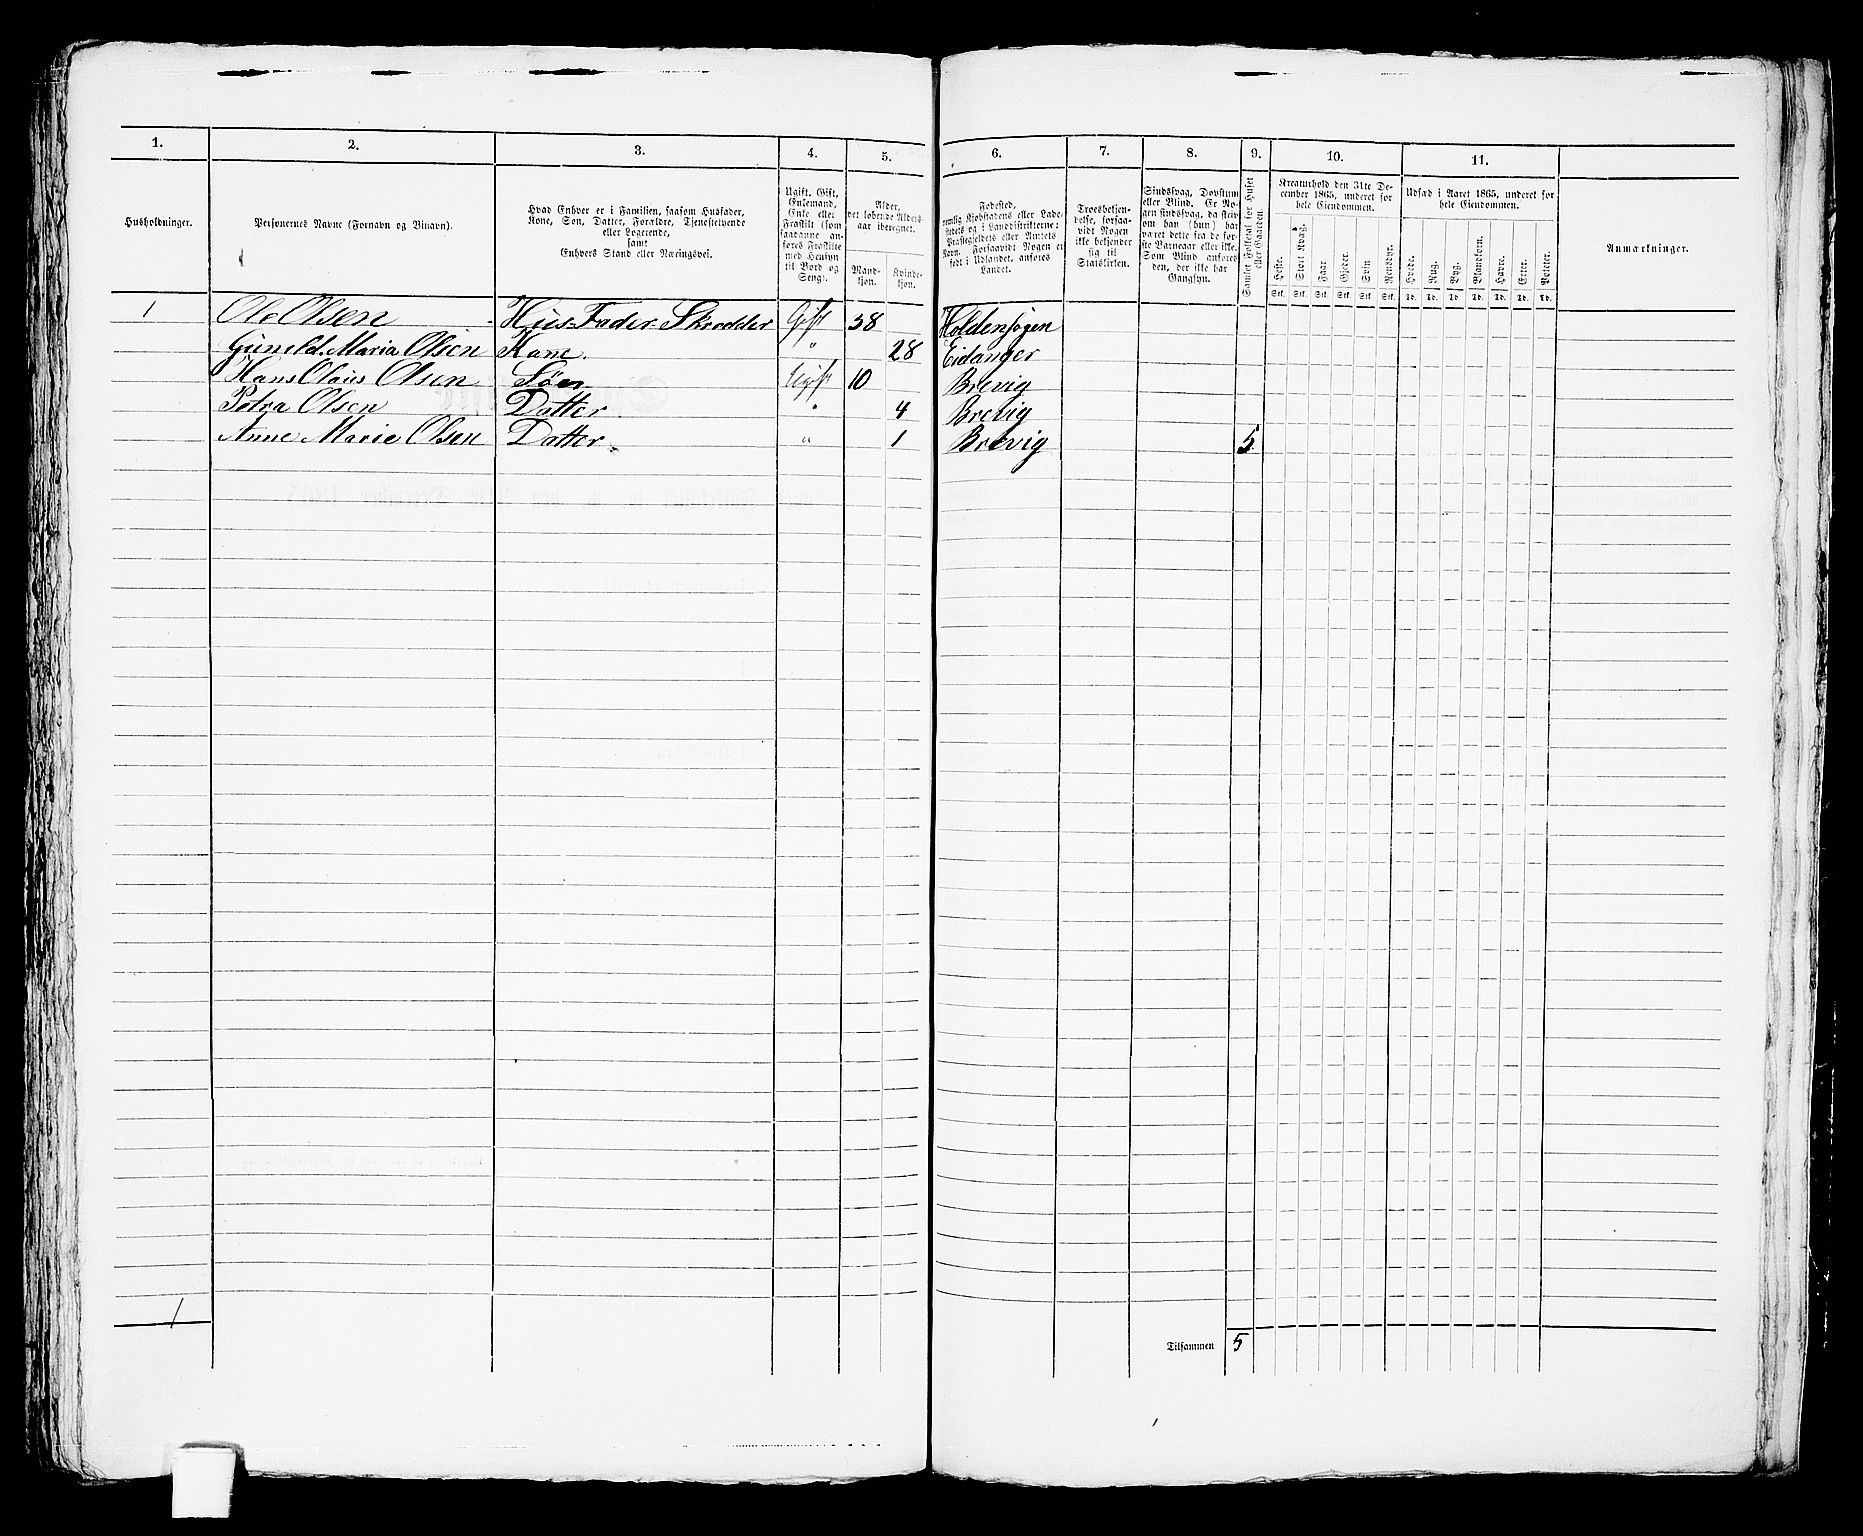 1. 2. 3. 4. 5. 6. 7. 8. 9. 10. 11.
Husholdninger.
Personernes Navne (Fornavn og Binavn).
Hvad Enhver er i Familien, saasom Husfader,
Kone, Søn, Datter, Forældre, Tjenestetyende
eller Logerende,
samt
Enhvers Stand eller Næringsvei.
Ugift, Gift,
Enkemand,
Enke eller
Fraskilt (som
saadanne an-
føres Fraskilte
med Hensyn
til Bord og
Seng).
Alder,
det løbende Alders-
aar iberegnet.
Mand-
kjøn.
Kvinde-
kjøn.
Fødested,
nemlig Kjøbstadens eller Lade-
stedets og i Landdistrikterne:
Præstegjeldets eller Amtets
Navn. Forsaavidt Nogen er
født i Udlandet, anføres
Landet.
Troesbekjen-
delse, forsaa-
vidt Nogen
ikke bekjender
sig til
Statskirken.
Sindssvag, Døvstum
eller Blind. Er No-
gen sindssvag, da skriv
om han (hun) har
været dette fra de før-
ste Barneaar eller ikke.
Som Blind anføres
den, der ikke har
Gangsyn.
Samlet Folketal for Huset
eller Gaarden.
Kreaturhold den 31te De-
cember 1865, underet for
hele Eiendommen.
Heste. Stort Kvæg. Faar. Gjeder. Svin. Rensdyr.
Stk. Stk. Stk. Stk. Stk. Stk.
Udsæd i Aaret 1865, underet for
hele Eiendommen.
Hvede. Rug. Byg. Blandkorn. Havre. Erter. Poteter.
Td. Td. Td. Td. Td. Td. Td.
Anmærkninger.
1 Ole Olsen Hus-Fader Skrædder Gift 38 Holdensogen
Guneld. Maria Olsen Kone. " 28 Eidanger
Hans Olaus Olsen Søn Ugift 10 Brevig
Petra Olsen Datter " 4 Brevig
Anne Marie Olsen Datter " 1 Brevig 5
1
Tilsammen 5